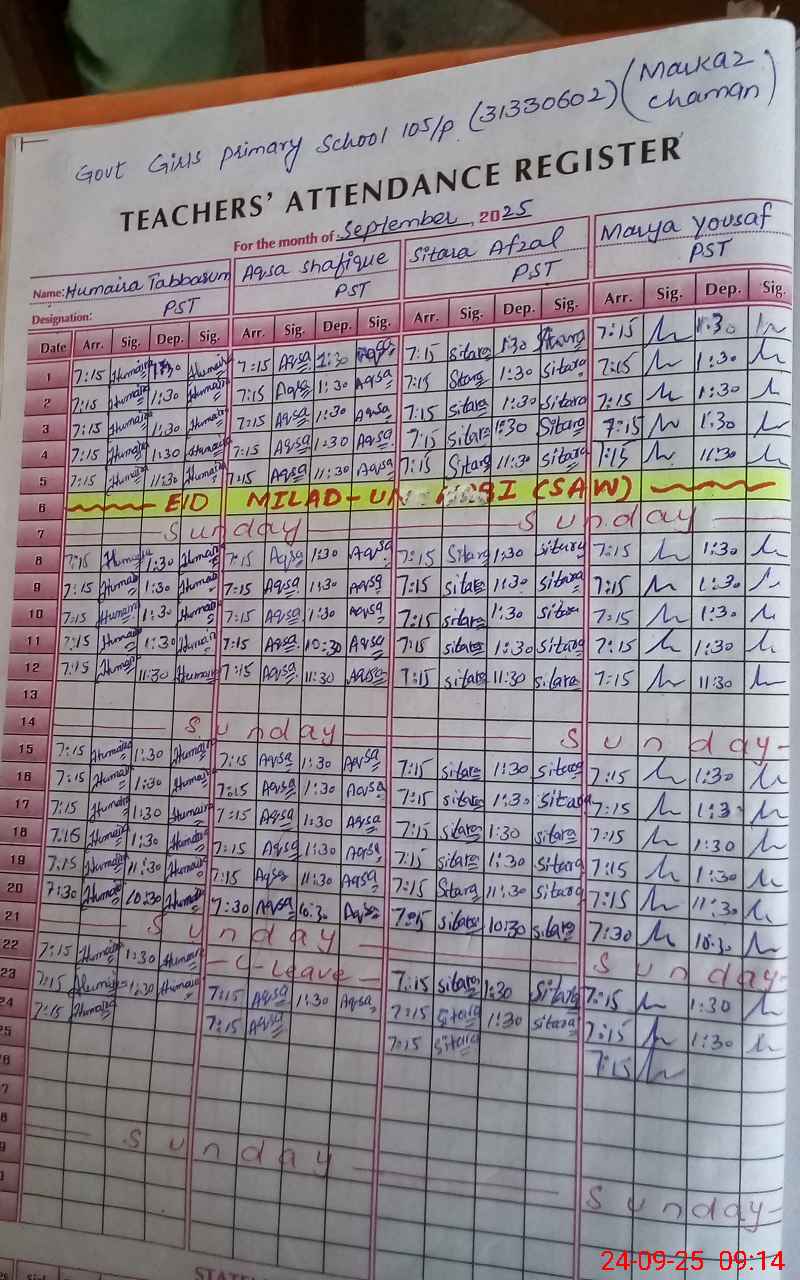 Govt Girls primary School 105/p (31330602) (Markaz chaman)
TEACHERS' ATTENDANCE REGISTER
For the month of September, 2025
Name: Humaira Tabbasum Aqsa shafique Sitara Afzal Marya Yousaf
Designation: PST PST PST PST
Date Arr. Sig. Dep. Sig. Arr. Sig. Dep. Sig. Arr. Sig. Dep. Sig. Arr. Sig. Dep. Sig.
1 7:15 Humaira 1:30 Humaira 7:15 Aqsa 1:30 Aqsa 7:15 sitara 1:30 Sitara 7:15 1:30
2 7:15 Humaira 1:30 Humaira 7:15 Aqsa 1:30 Aqsa 7:15 Sitara 1:30 Sitara 7:15 1:30
3 7:15 Humaira 1:30 Humaira 7:15 Aqsa 1:30 Aqsa 7:15 Sitara 1:30 Sitara 7:15 1:30
4 7:15 Humaira 1:30 Humaira 7:15 Aqsa 1:30 Aqsa 7:15 Sitara 1:30 Sitara 7:15 1:30
5 7:15 Humaira 11:30 Humaira 7:15 Aqsa 11:30 Aqsa 7:15 Sitara 11:30 sitara 7:15 11:30
6 EID MILAD-UN (SAW)
7 Sunday Sunday
8 7:15 Humaira 1:30 Humaira 7:15 Aqsa 1:30 Aqsa 7:15 Sitara 1:30 sitara 7:15 1:30
9 7:15 Humaira 1:30 Humaira 7:15 Aqsa 1:30 Aqsa 7:15 sitara 1:30 sitara 7:15 1:30
10 7:15 Humaira 1:30 Humaira 7:15 Aqsa 1:30 Aqsa 7:15 sitara 1:30 Sitara 7:15 1:30
11 7:15 Humaira 1:30 Humaira 7:15 Aqsa 10:30 Aqsa 7:15 sitara 1:30 Sitara 7:15 1:30
12 7:15 Humaira 11:30 Humaira 7:15 Aqsa 11:30 Aqsa 7:15 sitara 11:30 sitara 7:15 11:30
13
14 Sunday Sunday
15 7:15 Humaira 1:30 Humaira 7:15 Aqsa 1:30 Aqsa 7:15 sitara 1:30 sitara 7:15 1:30
16 7:15 Humaira 1:30 Humaira 7:15 Aqsa 1:30 Aqsa 7:15 sitara 1:30 Sitara 7:15 1:3
17 7:15 Humaira 1:30 Humaira 7:15 Aqsa 1:30 Aqsa 7:15 sitara 1:30 sitara 7:15 1:30
18 7:15 Humaira 1:30 Humaira 7:15 Aqsa 1:30 Aqsa 7:15 sitara 1:30 sitara 7:15 1:30
19 7:15 Humaira 11:30 Humaira 7:15 Aqsa 11:30 Aqsa 7:15 Sitara 11:30 sitara 7:15 11:30
20 7:30 Humaira 10:30 Humaira 7:30 Aqsa 10:30 Aqsa 7:15 sitara 10:30 sitara 7:30 10:30
21 Sunday Sunday
22 7:15 Humaira 1:30 Humaira C-Leave 7:15 sitara 1:30 Sitara 7:15 1:30
23 7:15 Humaira 1:30 Humaira 7:15 Aqsa 1:30 Aqsa 7:15 Sitara 1:30 sitara 7:15 1:30
24 7:15 Humaira 7:15 Aqsa 7:15 sitara 7:15
25
6
7
8
9 Sunday Sunday
24-09-25 09:14